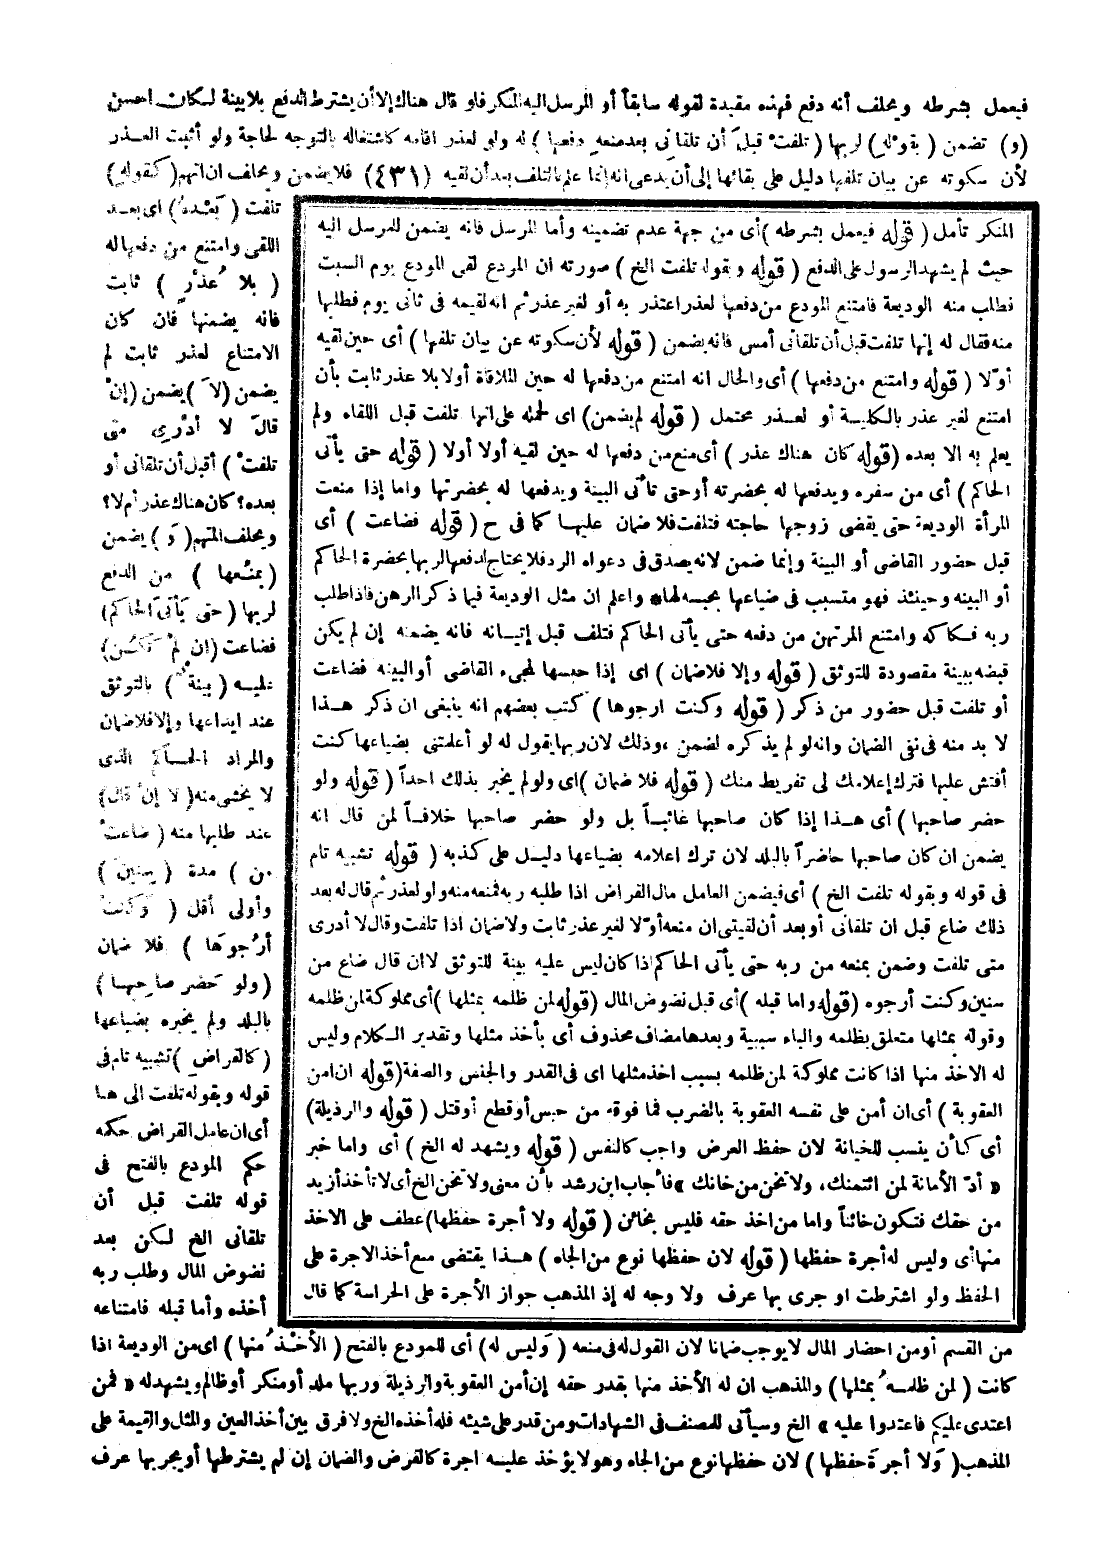 فيعمل بشرطه ويحلف أنه دفع فهذه مقيدة لقوله سابقاً أو المرسل اليه المنكر فلو قال هناك إلا أن يشترط الدفع بلا بينة لكان احسن
(و) تضمن (بقوله) لربها (تلفت قبل أن تلقاني بعد منعه دفعها) له ولو لعذر اقامه كاشتغاله بالتوجه لحاجة ولو أثبت العذر
لأن سكوته عن بيان تلفها دليل على بقائها إلى أن يدعى انه إنما علم بالتلف بعد أن لقيه (٤٣١) فلا يضمن ويحلف ان اتهم (كقوله)
تلفت (بَعْدهُ) اى بعد
اللقى وامتنع من دفعها له
(بلا عُذرٍ) ثابت
فانه يضمنها فان كان
الامتناع لعذر ثابت لم
يضمن (لاَ) يضمن (إنْ
قالَ لا أدْرِى متى
تلفتْ) أقبل أن تلقانى أو
بعده؟ كان هناك عذر أم لا؟
ويحلف المتهم (وَ) يضمن
(بمنْعها) من الدفع
لربها (حتى يَأتىَ الحاكم)
فضاعت (إن لمْ تَكُن)
عليه (بينةٌ) بالتوثق
عند ايداعها وإلا فلا ضمان
والمراد الحاكم الذى
لا يخشى منه (لا إنْ قال)
عند طلبها منه (ضاعتْ
من) مدة (سِنينَ)
وأولى أقل (وكنتُ
أرْجُوهَا) فلا ضمان
(ولو حَضر صاحبها)
بالبلد ولم يخبره بضياعها
(كالقراضِ) تشبيه تام فى
قوله وبقوله تلفت الى هنا
أى ان عامل القراض حكمه
حكم المودع بالفتح فى
قوله تلفت قبل أن
تلقانى الخ لكن بعد
نضوض المال وطلب ربه
أخذه وأما قبله فامتناعه
المنكر تأمل (قوله فيعمل بشرطه) أى من جهة عدم تضمينه وأما المرسل فانه يضمن للمرسل اليه
حيث لم يشهد الرسول على الدفع (قوله وبقوله تلفت الخ) صورته ان المودع لقى المودع يوم السبت
فطلب منه الوديعة فامتنع المودع من دفعها لعذر اعتذر به أو لغير عذر ثم انه لقيه فى ثانى يوم فطلبها
منه فقال له إنها تلفت قبل أن تلقانى أمس فانه يضمن (قوله لأن سكوته عن بيان تلفها) أى حين لقيه
أوّلا (قوله وامتنع من دفعها) أى والحال انه امتنع من دفعها له حين الملاقاة أولا بلا عذر ثابت بأن
امتنع لغير عذر بالكلية أو لعذر محتمل (قوله لم يضمن) اى لحمله على انها تلفت قبل اللقاء ولم
يعلم به الا بعده (قوله كان هناك عذر) أى منع من دفعها له حين لقيه أولا أولا (قوله حتى يأتى
الحاكم) أى من سفره ويدفعها له بحضرته أو حتى تأتى البينة ويدفعها له بحضرتها واما إذا منعت
المرأة الوديعة حتى يقضى زوجها حاجته فتلفت فلا ضمان عليها كما فى ح (قوله فضاعت) أى
قبل حضور القاضى أو البينة وإنما ضمن لانه يصدق فى دعواه الرد فلا يحتاج لدفعها لربها بحضرة الحاكم
أو البينه وحينئذ فهو متسبب فى ضياعها بحبسه لها* واعلم ان مثل الوديعة فيما ذكر الرهن فاذا طلب
ربه فكاكه وامتنع المرتهن من دفعه حتى يأتى الحاكم فتلف قبل إتيانه فانه يضمنه إن لم يكن
قبضه ببينة مقصودة للتوثق (قوله وإلا فلا ضمان) اى إذا حبسها لمجىء القاضى أو البينه فضاعت
أو تلفت قبل حضور من ذكر (قوله وكنت ارجوها) كتب بعضهم انه ينبغى ان ذكر هذا
لا بد منه فى نفى الضمان وانه لو لم يذكره لضمن، وذلك لان ربها يقول له لو أعلمتنى بضياعها كنت
أفتش عليها فترك إعلامك لى تفريط منك (قوله فلا ضمان) اى ولو لم يخبر بذلك احداً (قوله ولو
حضر صاحبها) أى هذا إذا كان صاحبها غائباً بل ولو حضر صاحبها خلافاً لمن قال انه
يضمن ان كان صاحبها حاضراً بالبلد لان ترك اعلامه بضياعها دليل على كذبه (قوله تشبيه تام
فى قوله وبقوله تلفت الخ) أى فيضمن العامل مال القراض اذا طلبه ربه فمنعه منه ولو لعذر ثم قال له بعد
ذلك ضاع قبل ان تلقانى أو بعد أن لقيتى ان منعه أوّلا لغير عذر ثابت ولا ضمان اذا تلفت وقال لا أدرى
متى تلفت وضمن بمنعه من ربه حتى يأتى الحاكم اذا كان ليس عليه بينة للتوثق لا ان قال ضاع من
سنين وكنت أرجوه (قوله واما قبله) أى قبل نضوض المال (قوله لمن ظلمه بمثلها) أى مملوكة لمن ظلمه
وقوله بمثلها متعلق بظلمه والباء سببية وبعدها مضاف محذوف أى بأخذ مثلها وتقدير الكلام وليس
له الاخذ منها اذا كانت مملوكة لمن ظلمه بسبب اخذ مثلها اى فى القدر والجنس والصفة (قوله ان امن
العقوبة) أى ان أمن على نفسه العقوبة بالضرب فما فوقه من حبس أو قطع أو قتل (قوله والرذيلة)
أى كأن ينسب للخيانة لان حفظ العرض واجب كالنفس (قوله ويشهد له الخ) أى واما خبر
« أدّ الأمانة لمن ائتمنك، ولا تخن من خانك » فأجاب ابن رشد بأن معنى ولا تخن الخ أى لا تأخذ أزيد
من حقك فتكون خائناً واما من اخذ حقه فليس بخائن (قوله ولا أجرة حفظها) عطف على الاخذ
منها أى وليس له أجرة حفظها (قوله لان حفظها نوع من الجاه) هذا يقتضى منع أخذ الاجرة على
الحفظ ولو اشترطت او جرى بها عرف ولا وجه له إذ المذهب جواز الأجرة على الحراسة كما قال
من القسم أو من احضار المال لا يوجب ضمانا لان القول له فى منعه (وَليس له) أى للمودع بالفتح (الأخْذُ منها) اى من الوديعة اذا
كانت (لمن ظلمهُ بمثلها) والمذهب ان له الأخذ منها بقدر حقه إن أمن العقوبة والرذيلة وربها ملد أو منكر أو ظالم ويشهد له « فمن
اعتدى عليكم فاعتدوا عليه » الخ وسيأتى للمصنف فى الشهادات ومن قدر على شيئه فله أخذه الخ ولا فرق بين أخذ العين والمثل والقيمة على
المذهب (وَلا أجرةَ حفظها) لان حفظها نوع من الجاه وهو لا يؤخذ عليه اجرة كالقرض والضمان إن لم يشترطها أو يجر بها عرف